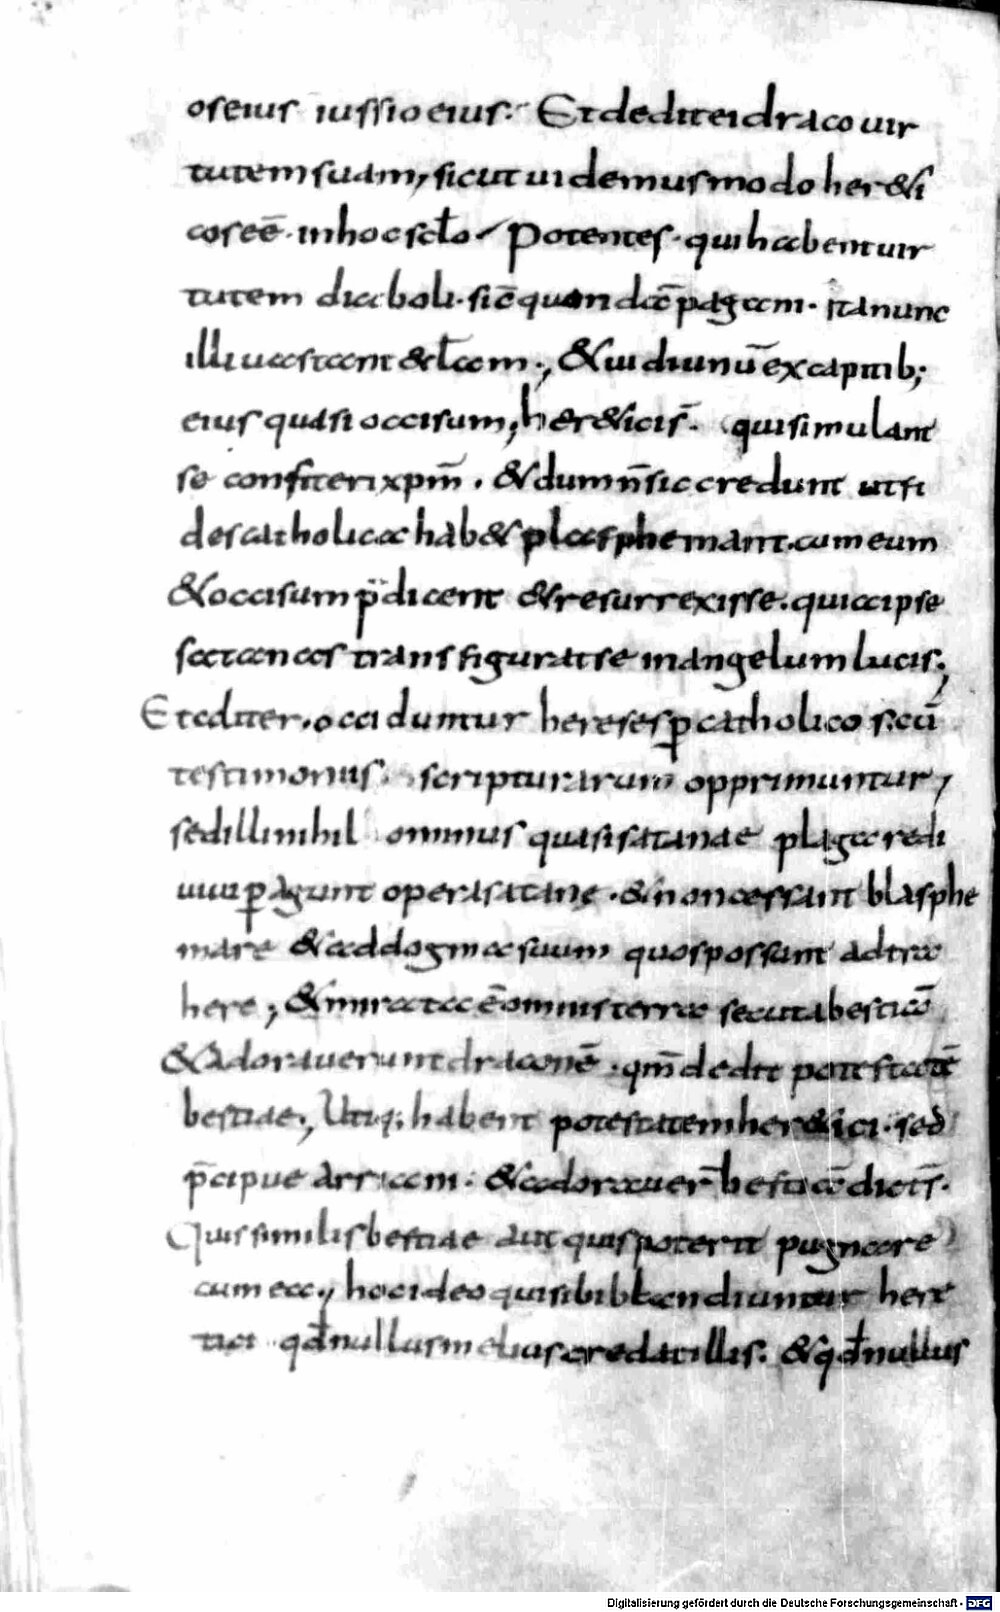 os eius iussio eius. Et dedit ei draco uir
tutem suam, sicut uidemus modo her&i
cos eē. in hoc sclo potentes. qui habent uir
tutem diaboli. sic̄ quondā pagani. ita nunc
illi uastant &clam.; & uidi unū ex capitib;
eius quasi occisum; her&icis̄. qui simulant
se confiteri xpm̄. & dum n̄ sic credunt ut fi
des catholica hab& plasphemant. cum eum
& occisum p̄dicent & resurrexisse. quia ipse
satanas transfigurat se in angelum lucis;
Et aliter. occiduntur hereses p catholicos. cū
testimoniis scripturarum opprimuntur,
sed illi nihil ominus quasi satanae plaga redi
uiui pagunt opera satanę. & non cessant blasphe
mare & ad dogma suum quos possunt adtra
here; & mirata ē omnis terra secuta bestiā
& adorauerunt draconē. qm̄ dedit potestatē
bestiae; Utiq; habent potestatem her&ici. sed
p̄cipue arriani. & adorauer̄ bestiā dicts̄.
Quis similis bestiae aut quis poterit pugnare
cum ea; hoc ideo qui sibi blandiuntur here
tici qđ nullus melius credat illis. & qđ nullus
Digitalisierung gefördert durch die Deutsche Forschungsgemeinschaft - DFG